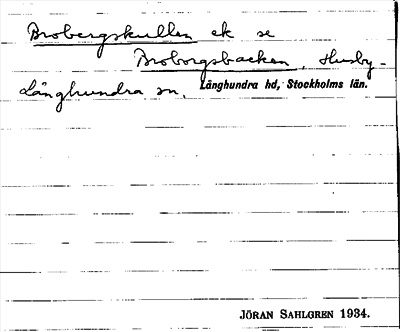 Brobergskullen ek se
Broborgsbacken, Husby-
Långhundra sn. Långhundra hd, Stockholms län.
JÖRAN SAHLGREN 1934.